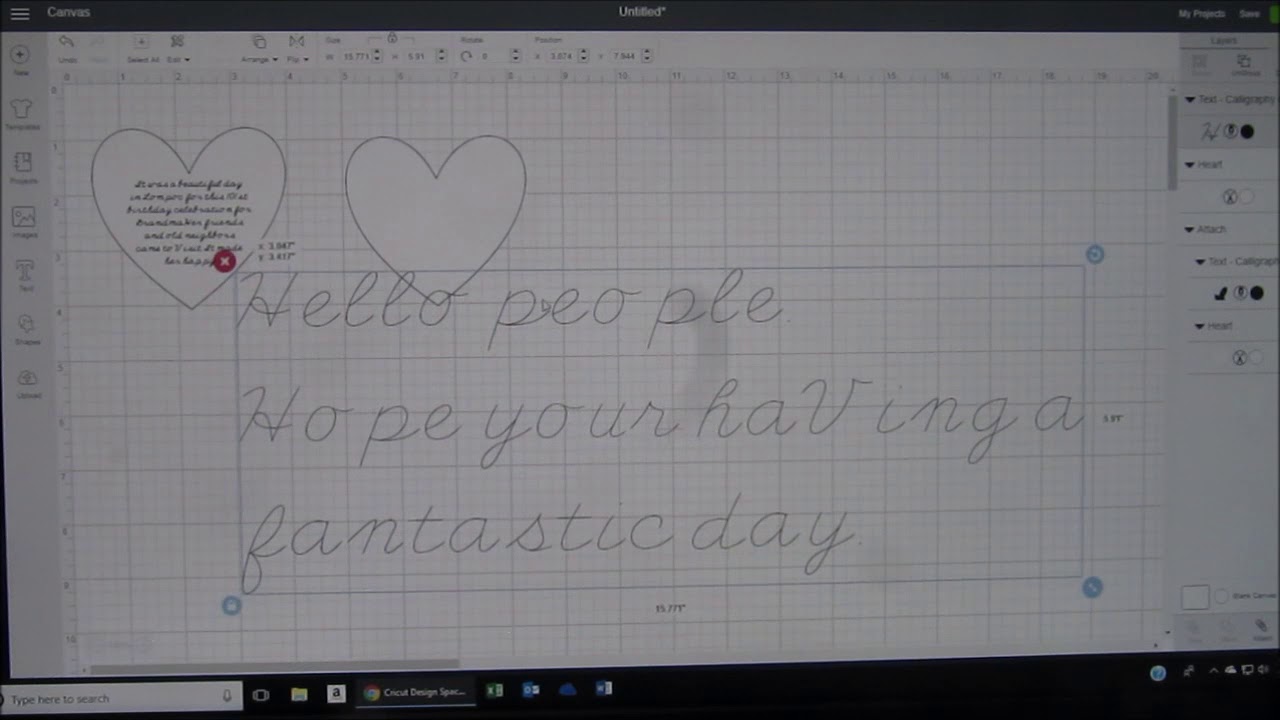 Canvas
Untitled*
My Projects
Save
Undo
Select All
Edit
Arrange
Flip
Size
W 15.771
H 5.91
Rotate
0
Position
X 3.074
Y 7.944
0 1 2 3 4 5 6 7 8 9 10 11 12 13 14 15 16 17 18 19 20
0
1
2
3
4
5
6
7
8
9
10
New
Templates
Projects
Images
Text
Shapes
Upload
It was a beautiful day
in Lompoc for this 101st
birthday celebration for
Grandma Her friends
and old neighbors
came to Visit It made
her happy
Hello people.
Hope your haVing a
fantastic day.
5.91"
15.771"
Layers
UnGroup
Text - Calligraphy
Heart
Attach
Text - Calligrap
Heart
Blank Canvas
Type here to search
Cricut Design Spac...